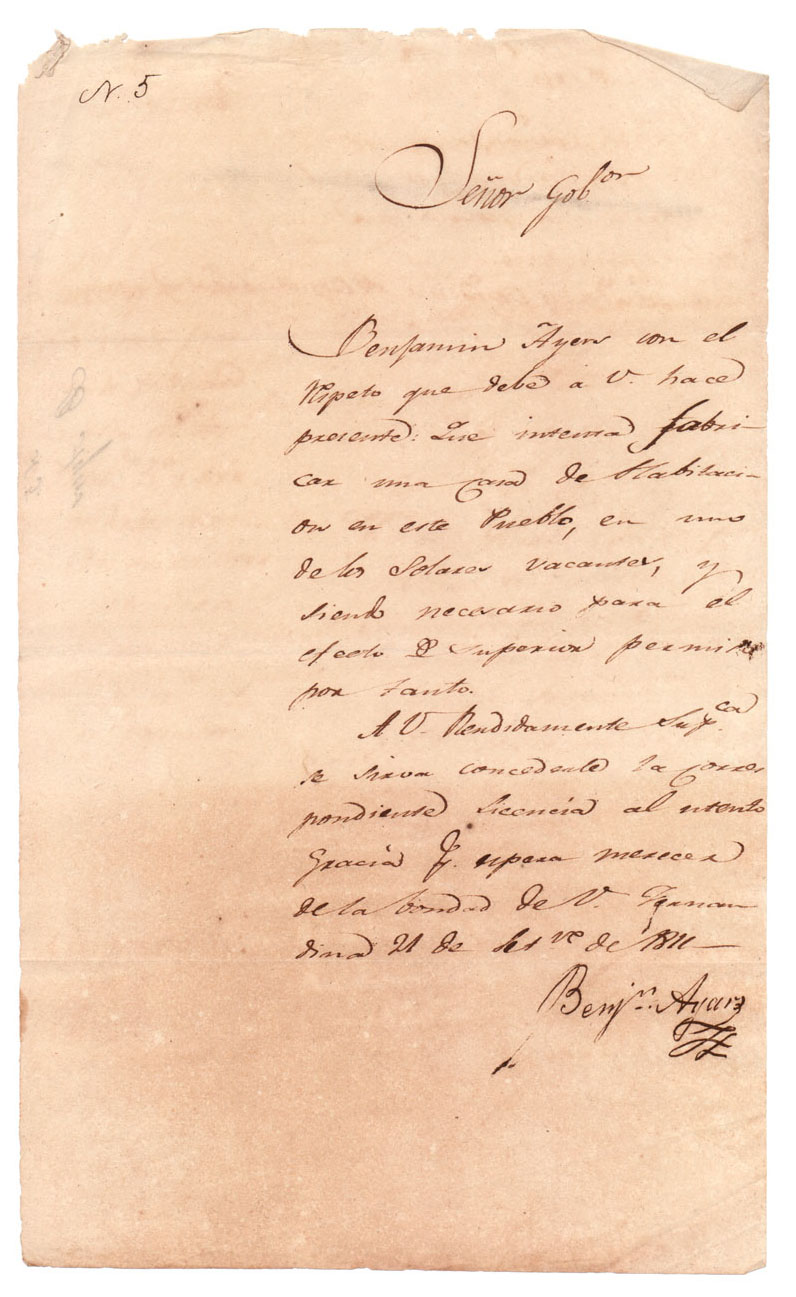 N. 5
Señor Gob.or
Benjamin Ayers con el
respeto que debe á V. hace
presente: Que intenta fabri-
car una casa de Habitaci-
on en este Pueblo, en uno
de los Solares vacantes, y
siendo necesario para el
efecto el superior permiso
por tanto.
A V. Rendidamente Sup.ca
se sirva concederle la corres
pondiente Licencia al intento
Gracia q. espera merecer
de la bondad de V. Fernan
dina 21 de Set.re de 1811—
Benjn. Ayarz